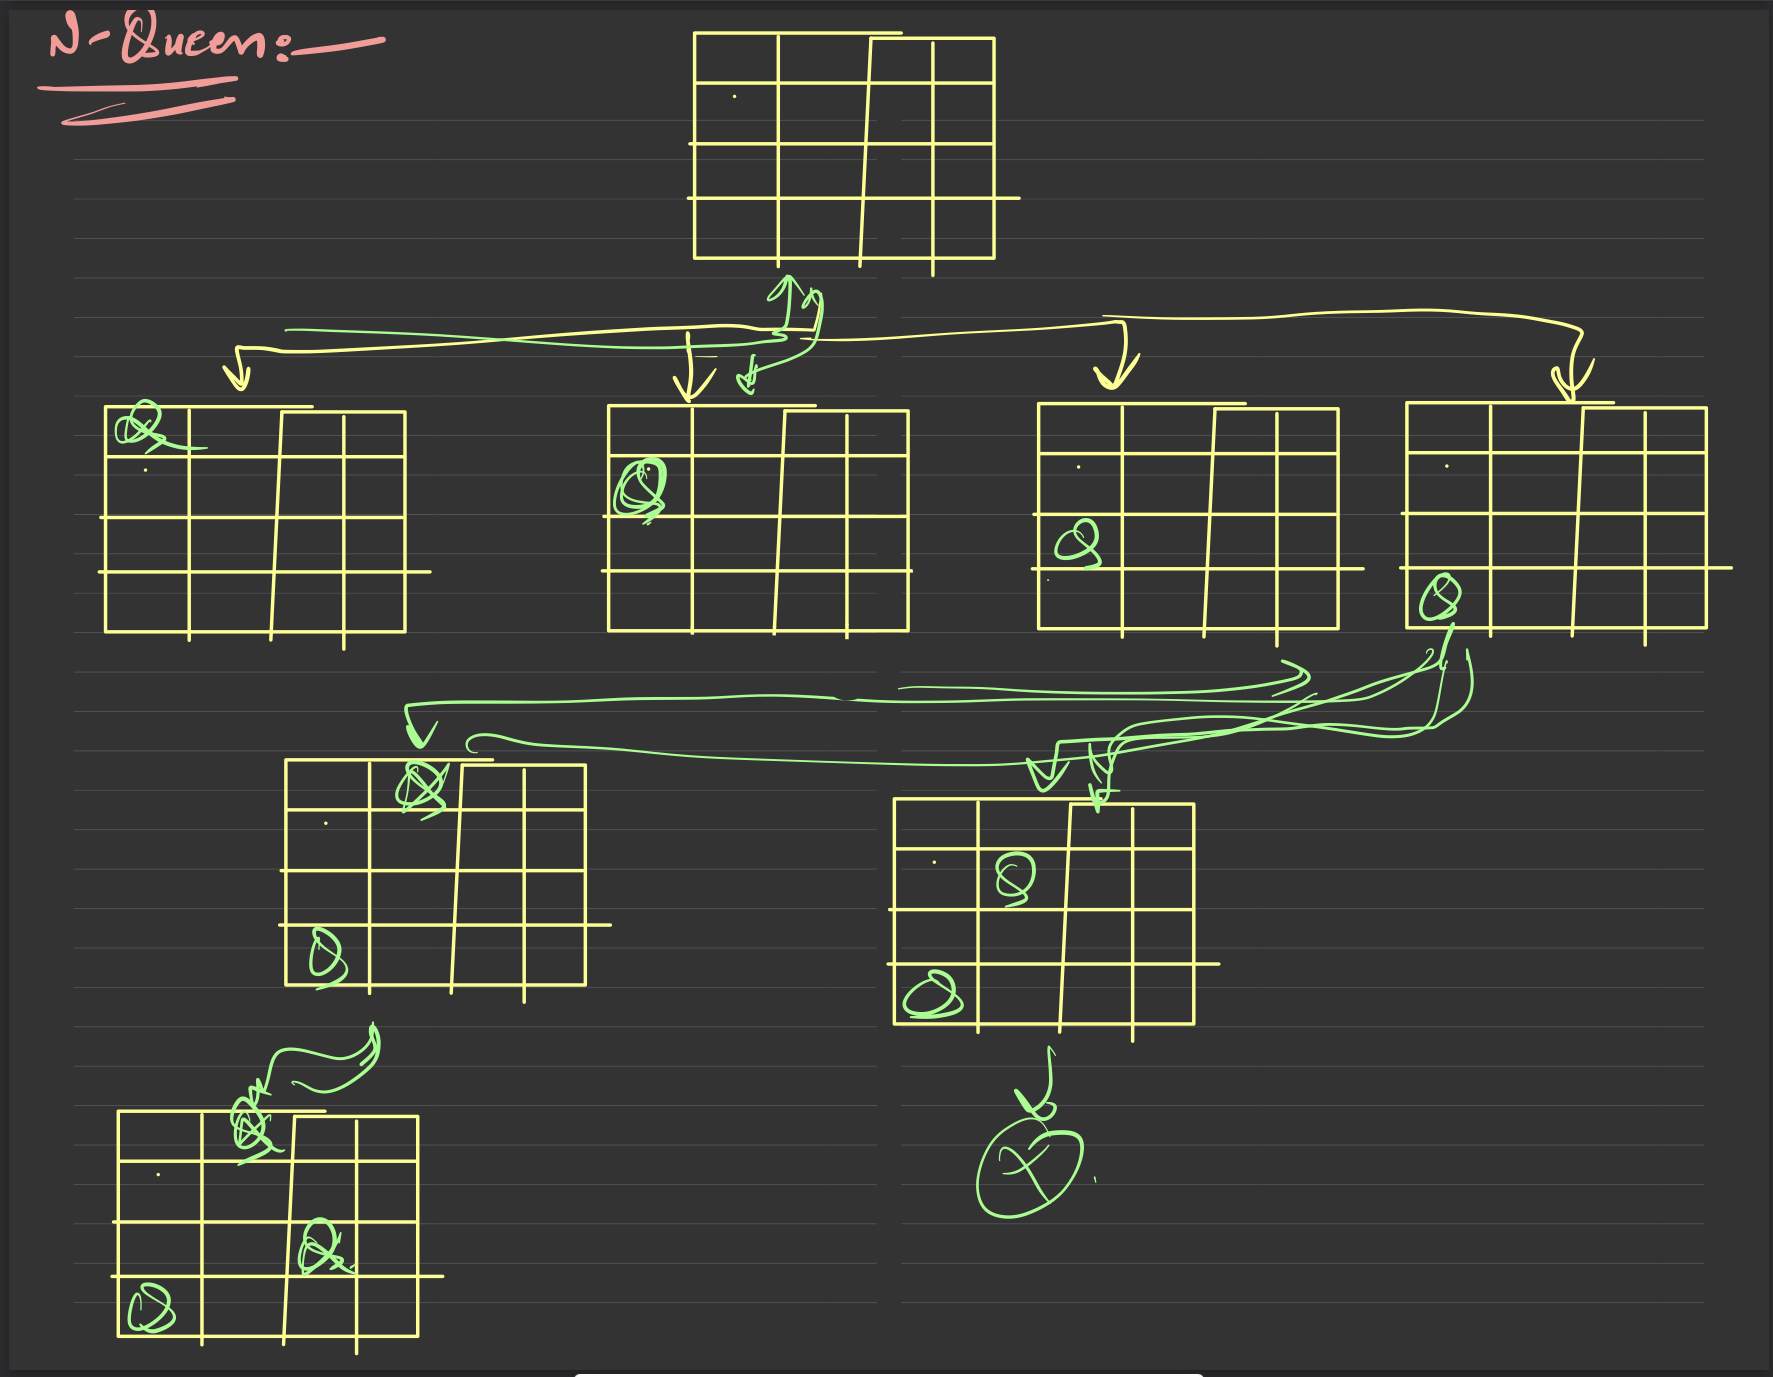 N-Queen:-
Q
Q
Q
Q
Q
Q
Q
Q
Q
Q
Q